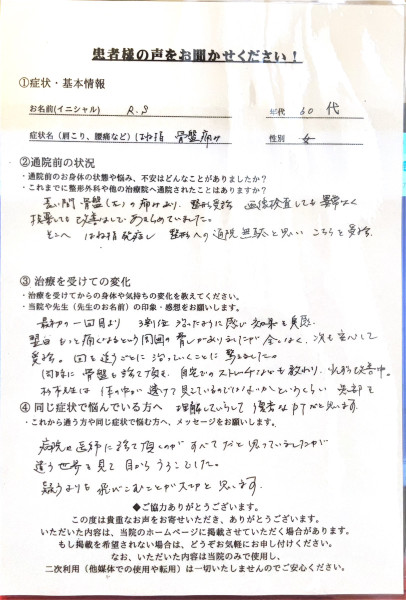 患者様の声をお聞かせください！
①症状・基本情報
お名前(イニシャル) R.S 年代 60代
症状名（肩こり、腰痛など）ばね指 骨盤痛み 性別 女
②通院前の状況
・通院前のお身体の状態や悩み、不安はどんなことがありましたか？
・これまでに整形外科や他の治療院へ通院されたことはありますか？
長い間 骨盤(左)の痛みあり、整形受診 画像検査しても異常なく
投薬しても改善なしで あきらめていました。
そこへ ばね指発症し 整形への通院無駄と思い こちらを受診
③ 治療を受けての変化
・治療を受けてからの身体や気持ちの変化を教えてください。
・当院や先生（先生のお名前）の印象・感想をお願いします。
最初の一回目より 3割位 治ったように感じ 効果を実感
翌日 もっと痛くなるという周囲の脅しがありましたが 全くなく、次も安心して
受診。回を追うごとに治っていくことに驚きました。
同時に 骨盤も診て頂き、自宅でのストレッチなども教わり、改善中。
先生は 体の中が透けて見えているのではないかというくらい 患部を
理解していらして 優秀なPTだと思います。
④ 同じ症状で悩んでいる方へ
・これから通う方や同じ症状で悩む方へ、メッセージをお願いします。
病院は医師に診て頂くのが すべてだと思っていましたが
違う世界を見て 目からうろこでした。
疑うよりも 飛びこむことが大切と思います。
◆ご協力ありがとうございます。
この度は貴重なお声をお寄せいただき、ありがとうございます。
いただいた内容は、当院のホームページに掲載させていただく場合があります。
もし掲載を希望されない場合は、どうぞお気軽にお申し付けください。
なお、いただいた内容は当院のみで使用し、
二次利用（他媒体での使用や転用）は一切いたしませんのでご安心ください。